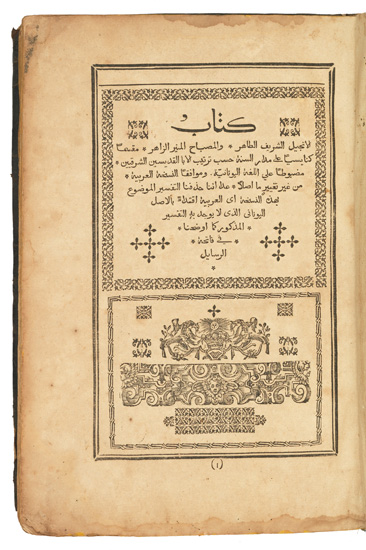 كتاب
الانجيل الشريف الطاهر * والمصباح المنير الزاهر *
كنايسيا على مدار السنة حسب ترتيب الابا القديسين الشرقيين *
مضبوطا على اللغة اليونانية * وموافقا النسخة العربية
من غير تغيير ما اصلا * حذفنا التفسير الموضوع
النسخة اى العربية اقتداء بالاصل
اليونانى الذى لا يوجد به التفسير
المذكور كما اوضحنا *
فى فاتحة *
الرسايل
*
(١)